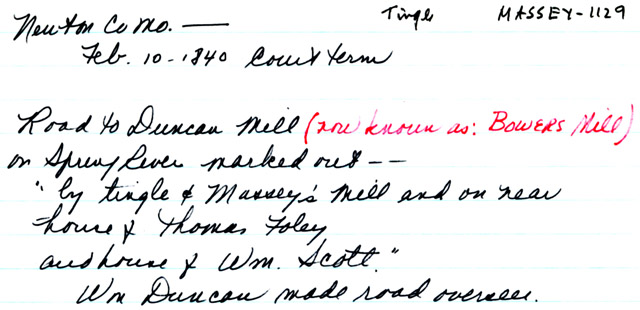 Tingle MASSEY-1129
Newton Co Mo. —
Feb. 10-1840 Court term
Road to Duncan Mill (now known as: BOWERS Mill)
on Spring River marked out --
"by tingle & Massey's Mill and on near
house of Thomas Foley
and house of Wm. Scott."
Wm Duncan made road overseer.